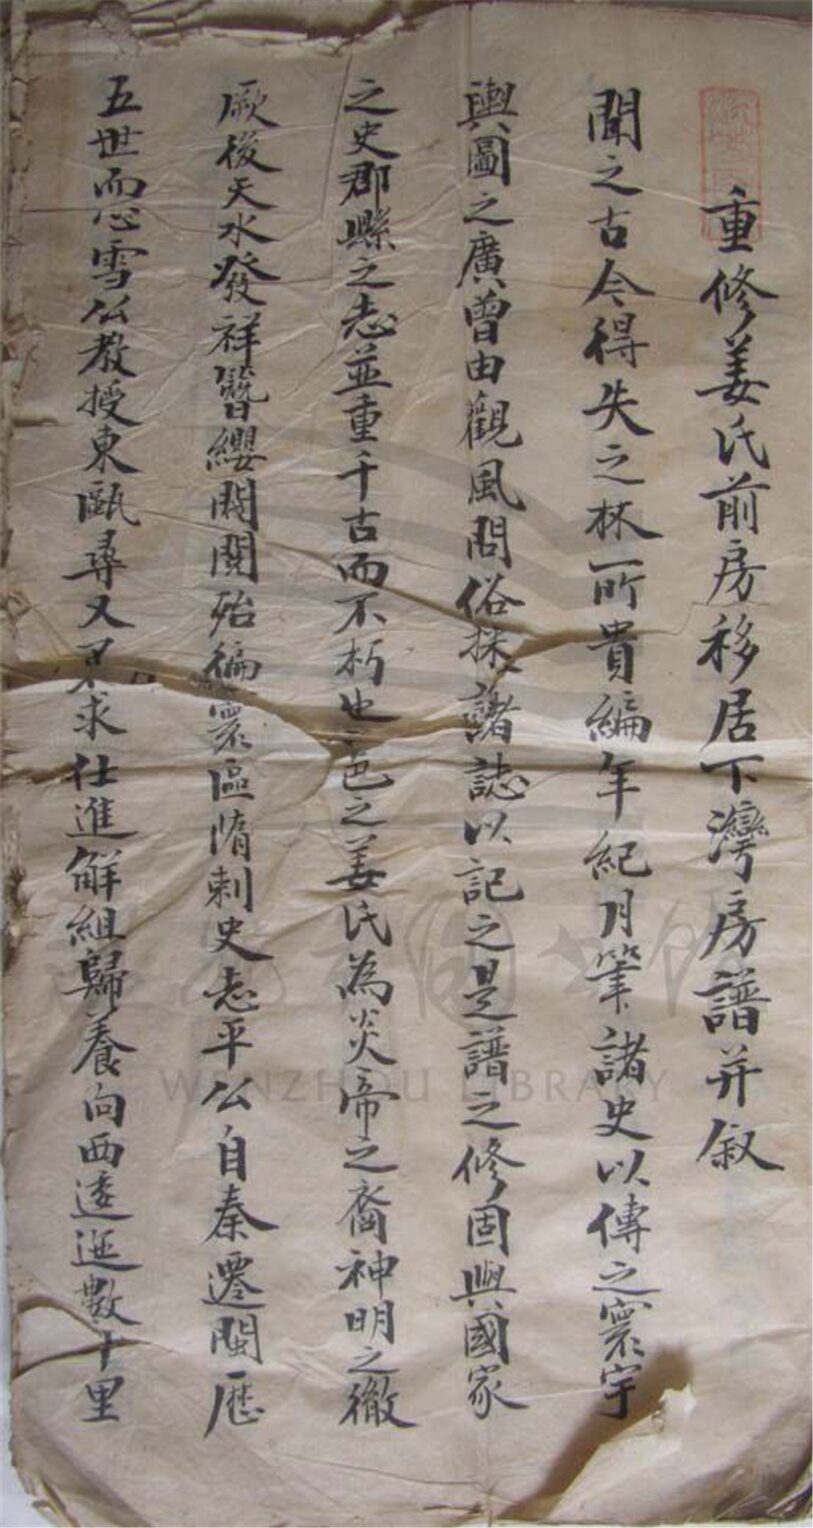 重修姜氏前房移居下灣房譜并叙
聞之古今得失之林所貴編年紀月筆諸史以傳之寰宇
輿圖之廣曾由觀風問俗採諸誌以記之是譜之修固與國家
之史郡縣之志並重千古而不朽也邑之姜氏為炎帝之裔神明之徹
厥後天水發祥簪纓閥閱殆徧寰區隋刺史志平公自秦遷閩歷
五世而心雪公教授東甌尋又不求仕進解組歸養向西逶迤數十里
WENZHOU LIBRARY